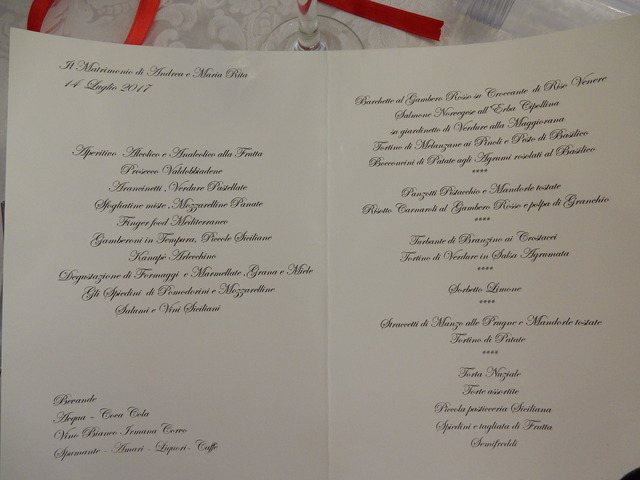 Il Matrimonio di Andrea e Maria Rita
14 Luglio 2017
Aperitivo Alcolico e Analcolico alla Frutta
Prosecco Valdobbiadene
Arancinetti , Verdure Pastellate
Sfogliatine miste , Mozzarelline Panate
Finger food Mediterraneo
Gamberoni in Tempura, Piccole Siciliane
Kanapè Arlecchino
Degustazione di Formaggi e Marmellate ,Grana e Miele
Gli Spiedini di Pomodorini e Mozzarelline
Salumi e Vini Siciliani
Bevande
Acqua - Coca Cola
Vino Bianco Irmana Corvo
Spumante - Amari - Liquori- Caffe
Barchette al Gambero Rosso su Croccante di Riso Venere
Salmone Norvegese all'Erba Cipollina
su giardinetto di Verdure alla Maggiorana
Tortino di Melanzane ai Pinoli e Pesto di Basilico
Bocconcini di Patate agli Agrumi rosolati al Basilico
****
Panzotti Pistacchio e Mandorle tostate
Risotto Carnaroli al Gambero Rosso e polpa di Granchio
****
Turbante di Branzino ai Crostacei
Tortino di Verdure in Salsa Agrumata
****
Sorbetto Limone
****
Straccetti di Manzo alle Prugne e Mandorle tostate
Tortino di Patate
****
Torta Nuziale
Torte assortite
Piccola pasticceria Siciliana
Spiedini e tagliata di Frutta
Semifreddi